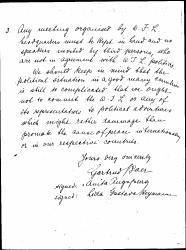 3. Any meeting organised by W.I.L.
Headquarters must be kept in hand and no
speakers invited by third persons, who
are not in agreement with W.I.L. politics.
We should keep in mind that the
political situation in a good many countries
is still so complicated that we ought
not to commit the W.I.L. or any of
its representatives to political adventures
which might rather damage than
promote the cause of peace internationally
or in our respective countries.
Yours very sincerely
Gertrud Baer
signed: Anita Augspurg
signed: Lida Gustava Heymann